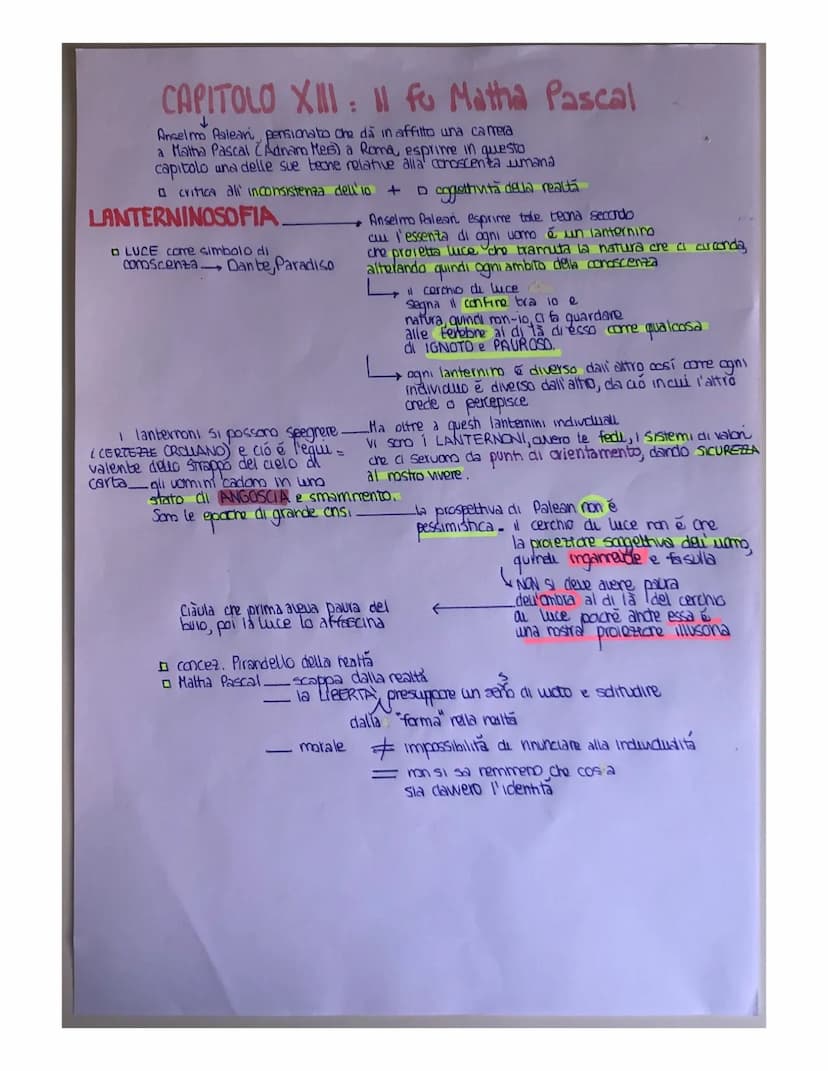 CAPITOLO XIII : Il fu Mattia Pascal
Anselmo Paleari, pensionato che dà in affitto una camera
a Mattia Pascal (Adriano Meis) a Roma, esprime in questo
capitolo una delle sue teorie relative alla conoscenza umana
critica all'inconsistenza dell'io + oggettività della realtà
LANTERNINOSOFIA
Anselmo Paleari esprime tale teoria secondo
cui l'essenza di ogni uomo è un lanternino
che proietta luce che tramuta la natura che ci circonda,
alterando quindi ogni ambito della conoscenza
LUCE come simbolo di
conoscenza → Dante, Paradiso
il cerchio di luce
segna il confine tra io e
natura, quindi non-io, ci fa guardare
alle tenebre al di là di esso come qualcosa
di IGNOTO e PAUROSO.
ogni lanternino è diverso dall'altro così come ogni
individuo è diverso dall'altro, da ciò in cui l'altro
crede o percepisce
Ma oltre a questi lanternini individuali
vi sono i LANTERNONI, ovvero le fedi, i sistemi di valori
che ci servono da punti di orientamento, dando SICUREZZA
al nostro vivere.
i lanternoni si possono spegnere
(CERTEZZE CROLLANO) e ciò è l'equi =
valente dello strappo del cielo di
carta — gli uomini cadono in uno
stato di ANGOSCIA e smarrimento.
Sono le epoche di grande crisi
la prospettiva di Paleari non è
pessimistica - il cerchio di luce non è che
la proiezione soggettiva dell'uomo,
quindi ingannevole e fasulla
NON si deve avere paura
dell'ombra al di là del cerchio
di luce poiché anche essa è
una nostra proiezione illusoria
Ciàula che prima aveva paura del
buio, poi la luce lo affascina
concez. Pirandello della realtà
Mattia Pascal — scappa dalla realtà
— la LIBERTÀ, presuppone un senso di vuoto e solitudine
dalla "forma" nella realtà
— morale ≠ impossibilità di rinunciare alla individualità
= non si sa nemmeno che cosa
sia davvero l'identità